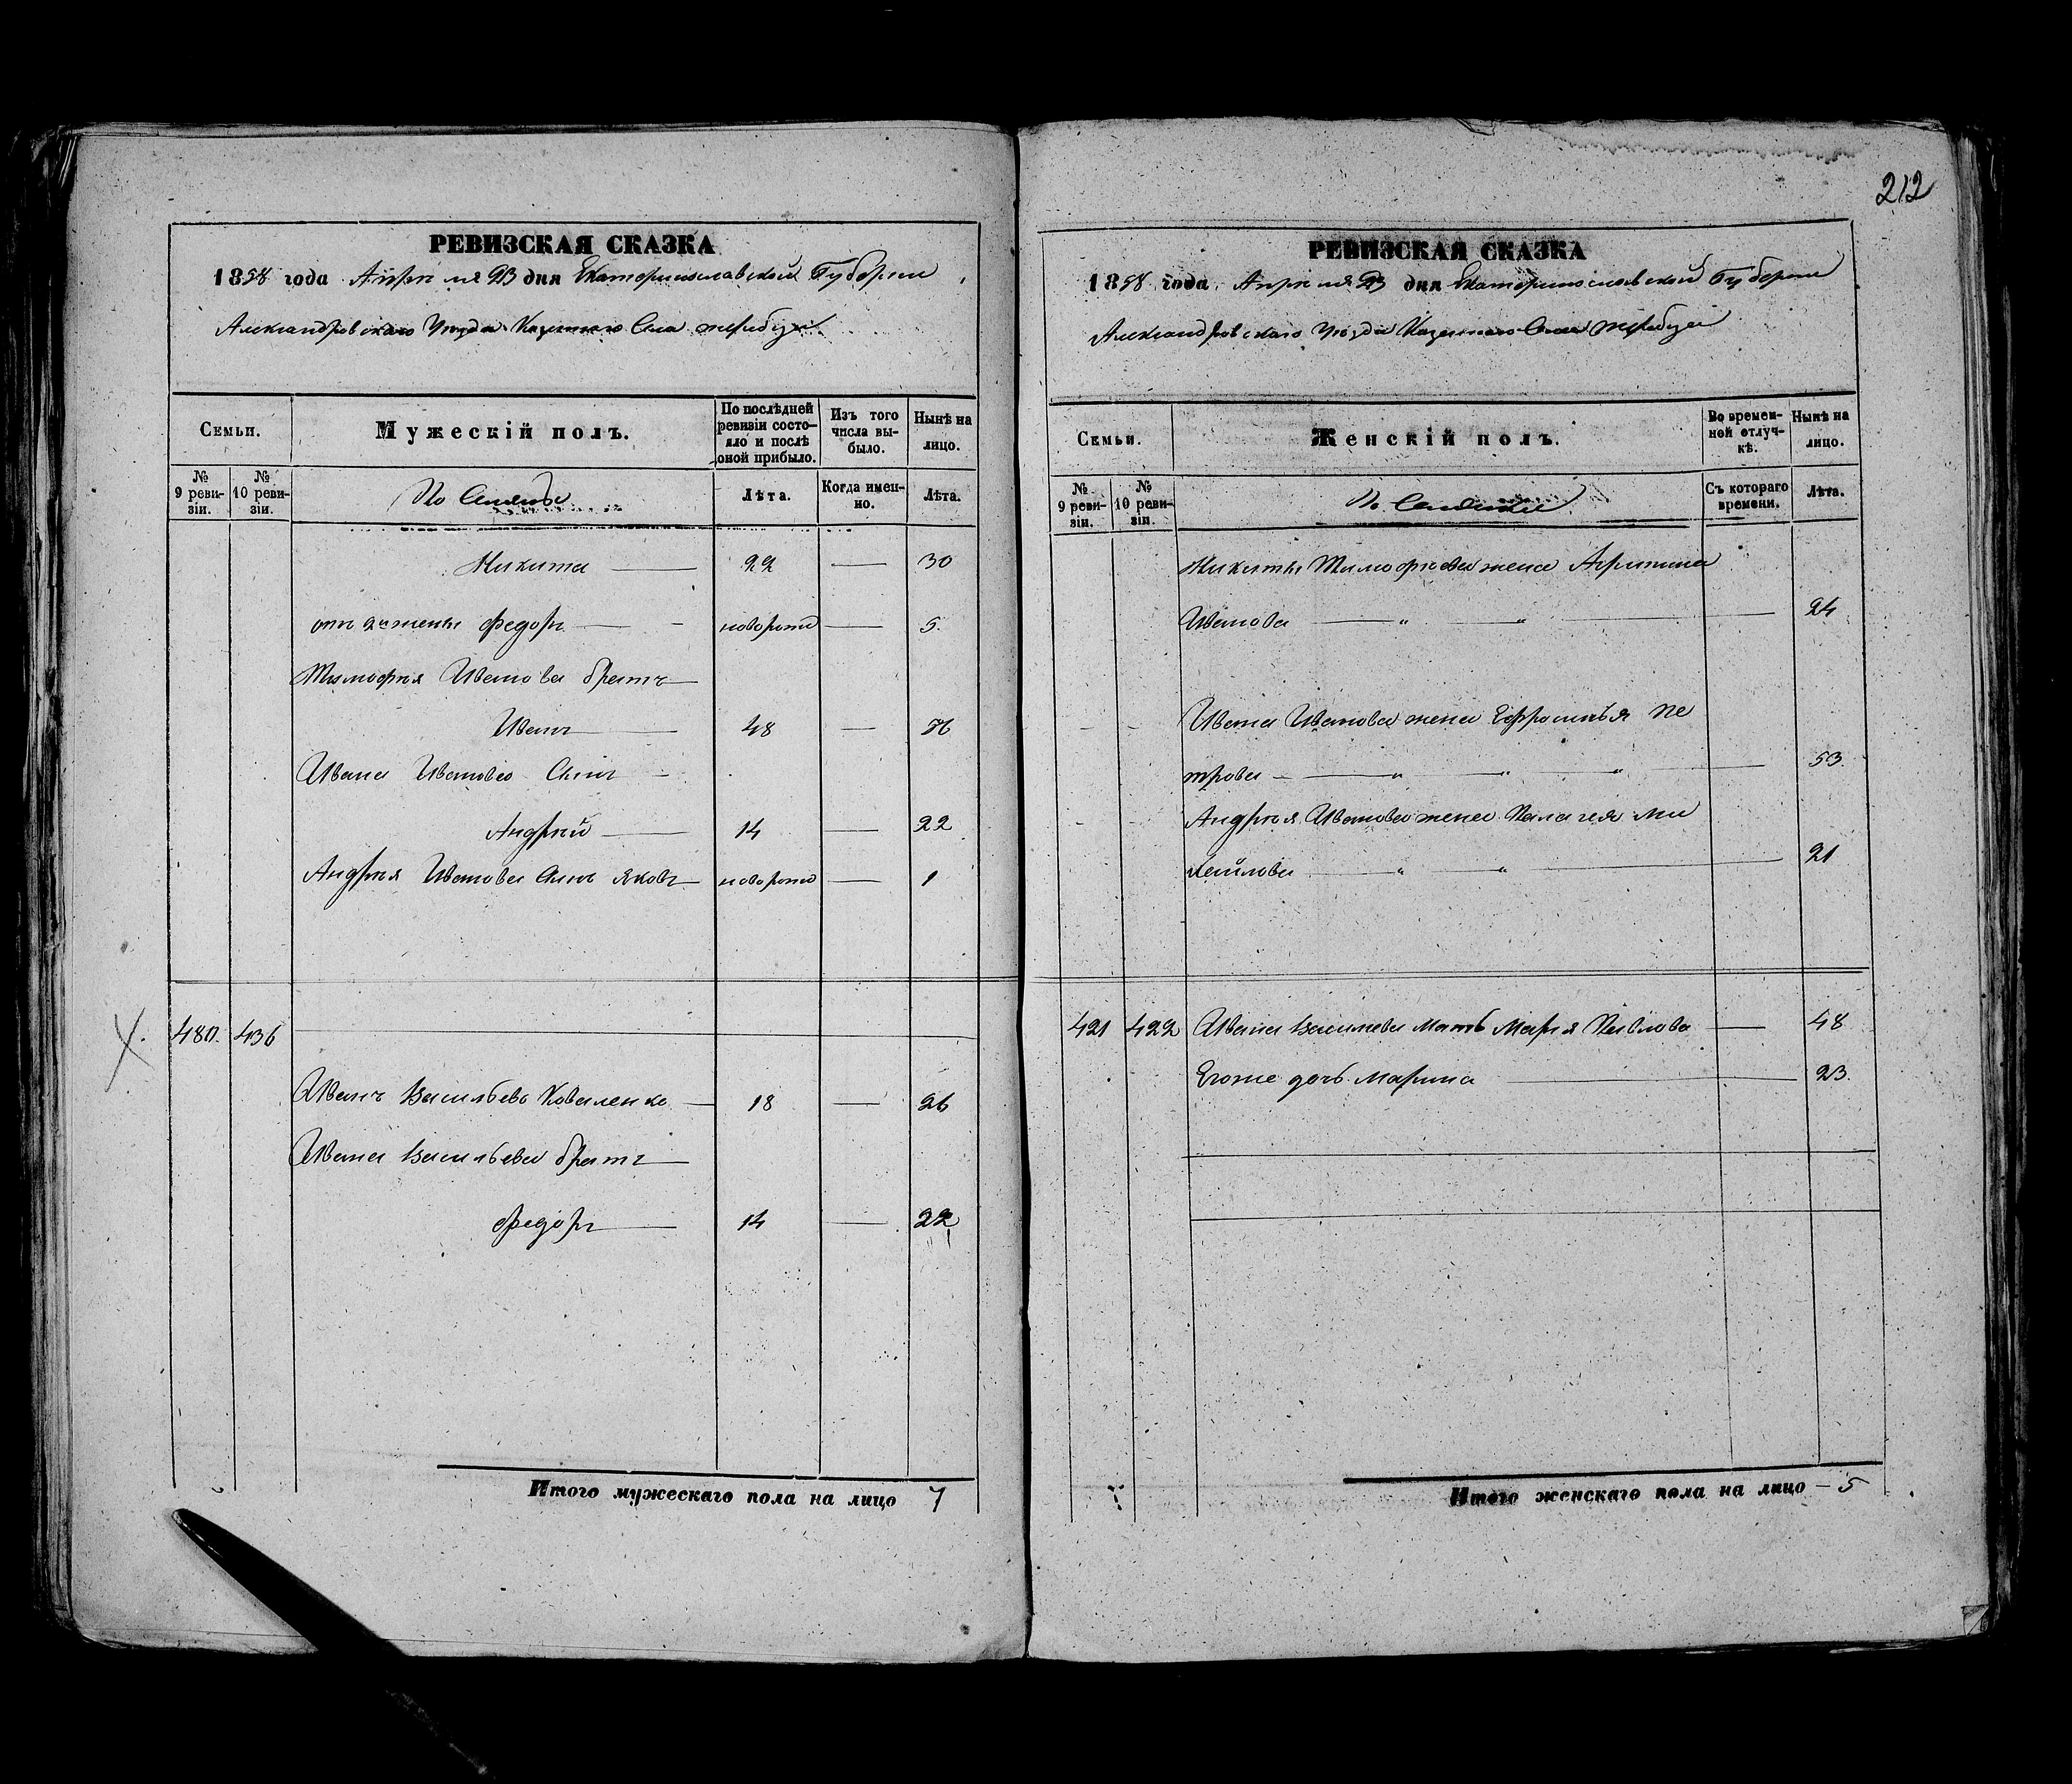 РЕВИЗСКАЯ СКАЗКА
1858 года Апрѣля 23 дня Екатеринославской Губерніи
Александровскаго Уѣзда Казеннаго Села Жеребца
Семьи.
Мужескій полъ.
По послѣдней ревизіи состояло и послѣ оной прибыло.
Изъ того числа выбыло.
Нынѣ на лицо.
№ 9 ревизіи.
№ 10 ревизіи.
Лѣта.
Когда именно.
Лѣта.
Никита 22 — 30
отъ 2й жены Федоръ — новорож — 5.
Тимофѣя Иванова братъ
Иванъ 48 — 56
Ивана Иванова Сынъ
Андрѣй 14 — 22
Андрѣя Иванова Сынъ Яковъ новорож — 1
480. 436
Иванъ Васильевъ Коваленко 18 — 26
Ивана Васильева братъ
Федоръ 14 — 22
Итого мужескаго пола на лицо 7
212
РЕВИЗСКАЯ СКАЗКА
1858 года Апрѣля 23 дня Екатеринославской Губерніи
Александровскаго Уѣзда Казеннаго Села Жеребца
Семьи.
Женскій полъ.
Во временной отлучкѣ.
Нынѣ на лицо.
№ 9 ревизіи.
№ 10 ревизіи.
Съ котораго времени.
Лѣта.
Никиты Тимофѣева жена Агрипина
Иванова — " — " — 24
Ивана Иванова жена Ефросинья Пе
трова — " — " — " — 53.
Андрѣя Иванова жена Пелагея Ми
хайлова — " — " — 21
421 422 Ивана Васильева Мать Марѳя Павлова — 48
Егоже дочь Марина — 23.
Итого женскаго пола на лицо — 5